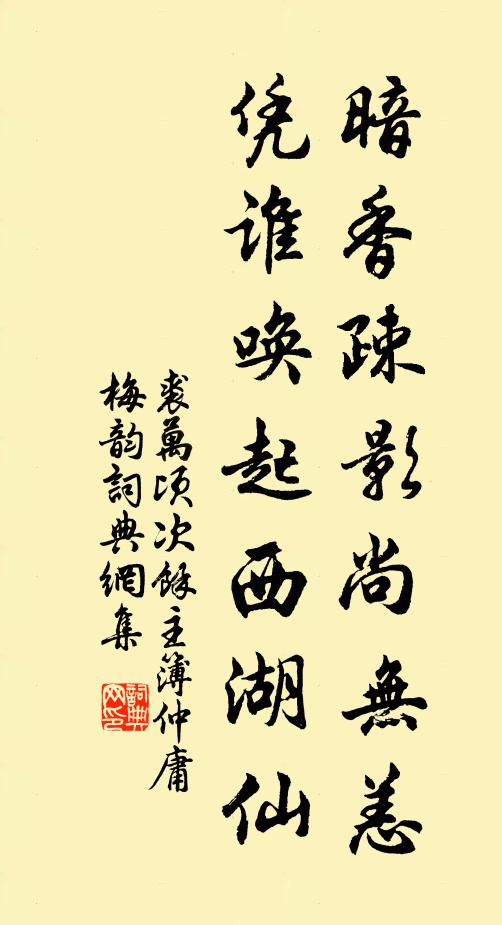 暗香疎影尚無恙
凭誰唤起西湖仙
裘萬頃次餘主簿仲庸
梅韵詞典網集
詞典网印